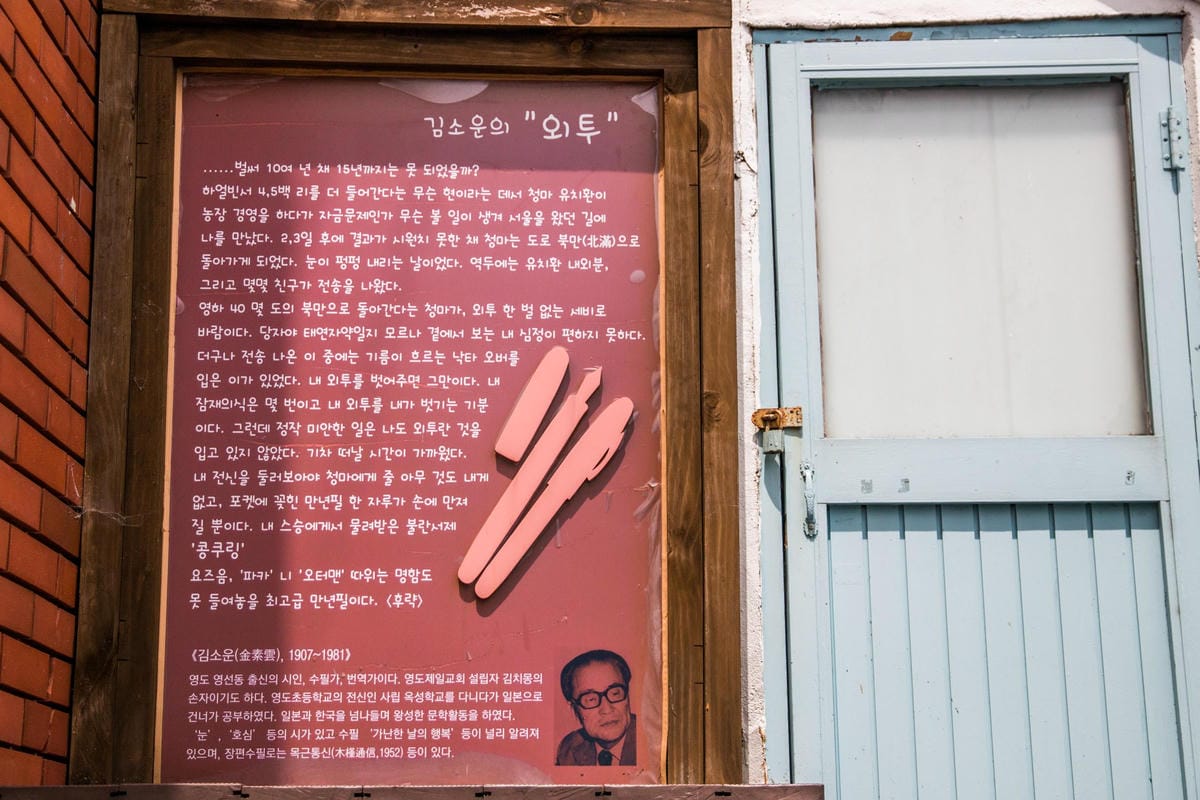 김소운의 "외투"
......벌써 10여 년 채 15년까지는 못 되었을까?
하얼빈서 4,5백 리를 더 들어간다는 무슨 현이라는 데서 청마 유치환이
농장 경영을 하다가 자금문제인가 무슨 볼 일이 생겨 서울을 왔던 길에
나를 만났다. 2,3일 후에 결과가 시원치 못한 채 청마는 도로 북만(北滿)으로
돌아가게 되었다. 눈이 펑펑 내리는 날이었다. 역두에는 유치환 내외분,
그리고 몇몇 친구가 전송을 나왔다.
영하 40 몇 도의 북만으로 돌아간다는 청마가, 외투 한 벌 없는 세비로
바람이다. 당자야 태연자약일지 모르나 곁에서 보는 내 심정이 편하지 못하다.
더구나 전송 나온 이 중에는 기름이 흐르는 낙타 오버를
입은 이가 있었다. 내 외투를 벗어주면 그만이다. 내
잠재의식은 몇 번이고 내 외투를 내가 벗기는 기분
이다. 그런데 정작 미안한 일은 나도 외투란 것을
입고 있지 않았다. 기차 떠날 시간이 가까웠다.
내 전신을 둘러보아야 청마에게 줄 아무 것도 내게
없고, 포켓에 꽂힌 만년필 한 자루가 손에 만져
질 뿐이다. 내 스승에게서 물려받은 불란서제
'콩쿠링'
요즈음, '파카' 니 '오터맨' 따위는 명함도
못 들여놓을 최고급 만년필이다. <후략>
《김소운(金素雲), 1907~1981》
영도 영선동 출신의 시인, 수필가, 번역가이다. 영도제일교회 설립자 김치몽의
손자이기도 하다. 영도초등학교의 전신인 사립 옥성학교를 다니다가 일본으로
건너가 공부하였다. 일본과 한국을 넘나들며 왕성한 문학활동을 하였다.
'눈', '호심' 등의 시가 있고 수필 '가난한 날의 행복' 등이 널리 알려져
있으며, 장편수필로는 목근통신(木槿通信,1952) 등이 있다.